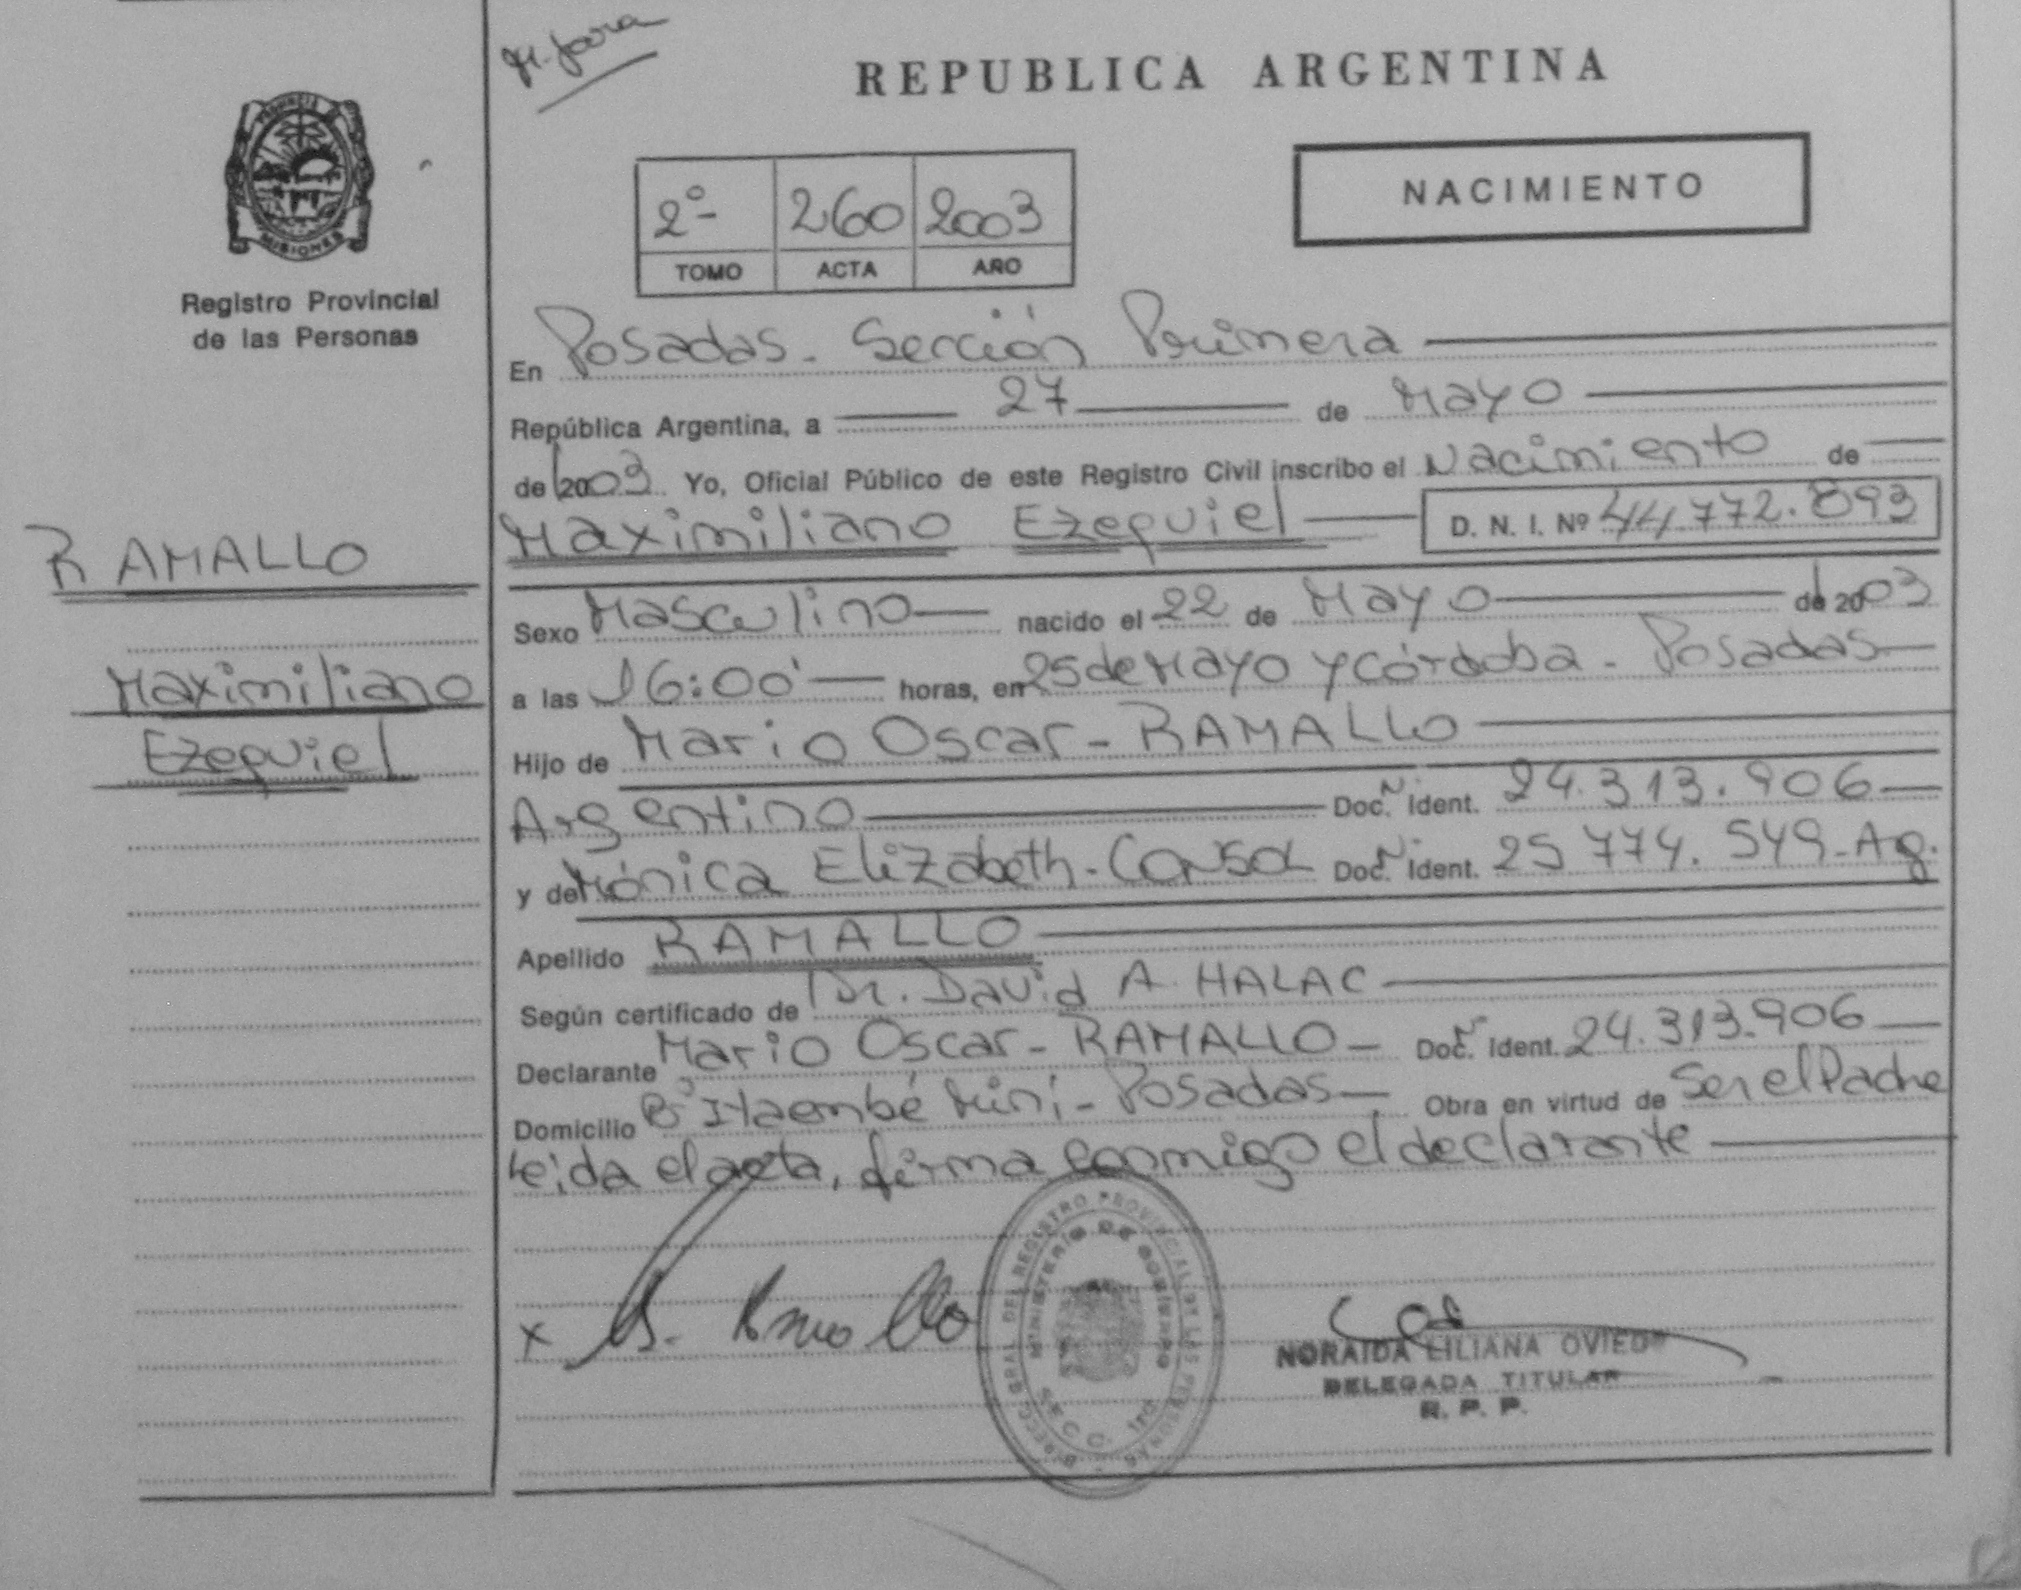 REPUBLICA ARGENTINA
PROVINCIA
MISIONES
Registro Provincial
de las Personas
NACIMIENTO
2º 260 2003
TOMO ACTA AÑO
En Posadas - Sección Primera
República Argentina, a 27 de Mayo
de 2003 Yo, Oficial Público de este Registro Civil inscribo el Nacimiento de
Maximiliano Ezequiel D. N. I. Nº 44.772.893
RAMALLO
Maximiliano
Ezequiel
Sexo Masculino nacido el 22 de Mayo de 2003
a las 16:00' horas, en 25 de Mayo y Córdoba - Posadas
Hijo de Mario Oscar - RAMALLO
Argentino Doc. Ident. 24.313.906
y de Mónica Elizabeth - Doc. Ident. 25 774. 549 - Ag.
Apellido RAMALLO
Según certificado de Dr. David A. HALAC
Declarante Mario Oscar - RAMALLO - Doc. Ident. 24.313.906
Domicilio Bº Itaembé Miní - Posadas - Obra en virtud de Ser el Padre
Leida el acta, firma conmigo el declarante
REGISTRO PROVINCIAL DE LAS PERSONAS
MINISTERIO DE GOBIERNO
SECC. 1ra.
NORAIDA LILIANA OVIEDO
DELEGADA TITULAR
R. P. P.